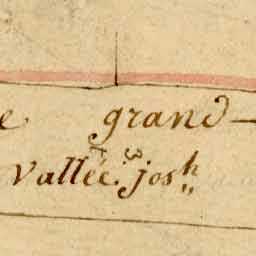 e grand
Vallée. jos.h